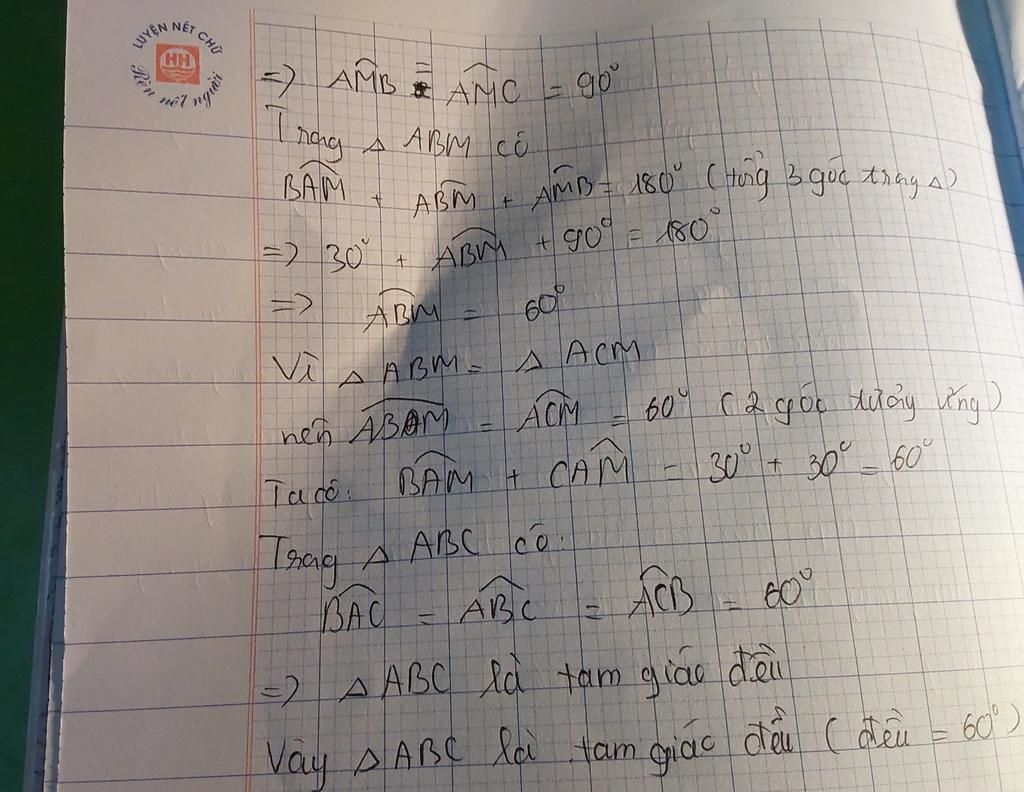 LUYỆN NÉT CHỮ
HH
Rèn nết người
=> AM̂B = AM̂C = 90°
Trong △ ABM có
BÂM + AB̂M + AM̂B = 180° (tổng 3 góc trong △)
=> 30° + AB̂M + 90° = 180°
=> AB̂M = 60°
Vì △ ABM = △ ACM
nên AB̂M = AĈM = 60° (2 góc tương ứng)
Ta có: BÂM + CÂM = 30° + 30° = 60°
Trong △ ABC có:
BÂC = AB̂C = AĈB = 60°
=> △ ABC là tam giác đều
Vậy △ ABC là tam giác đều (đều = 60°)